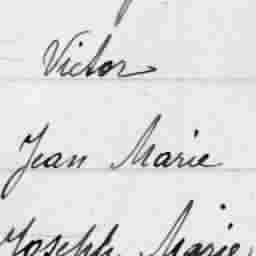 Victor
Jean Marie
Joseph Marie